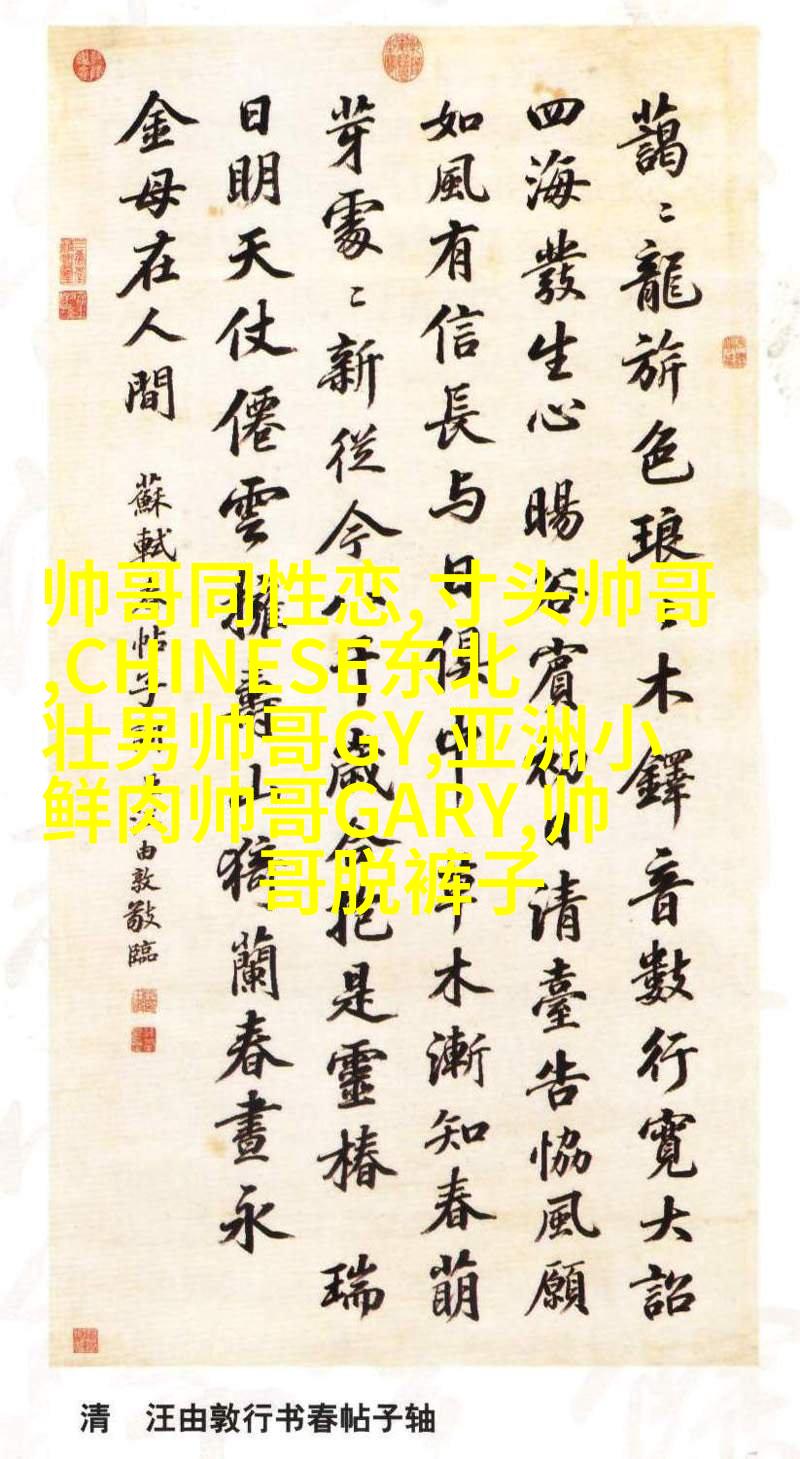 藹〻龍旂色琅〻木鐸音數行寬大詔
四海發生心 暘谷賓初日清臺告協風願
如風有信長与日俱中 草木漸知春萌
芽處〻新從今八千歲合抱是靈椿 瑞
日明天仗僊雲擁壽山猗蘭春晝永
金母在人間 蘇軾春帖子詞
由敦敬臨
帅哥同性恋,寸头帅哥
,CHINESE东北
壮男帅哥GY,亚洲小
鲜肉帅哥GARY,帅
哥脱裤子
清 汪由敦行书春帖子轴